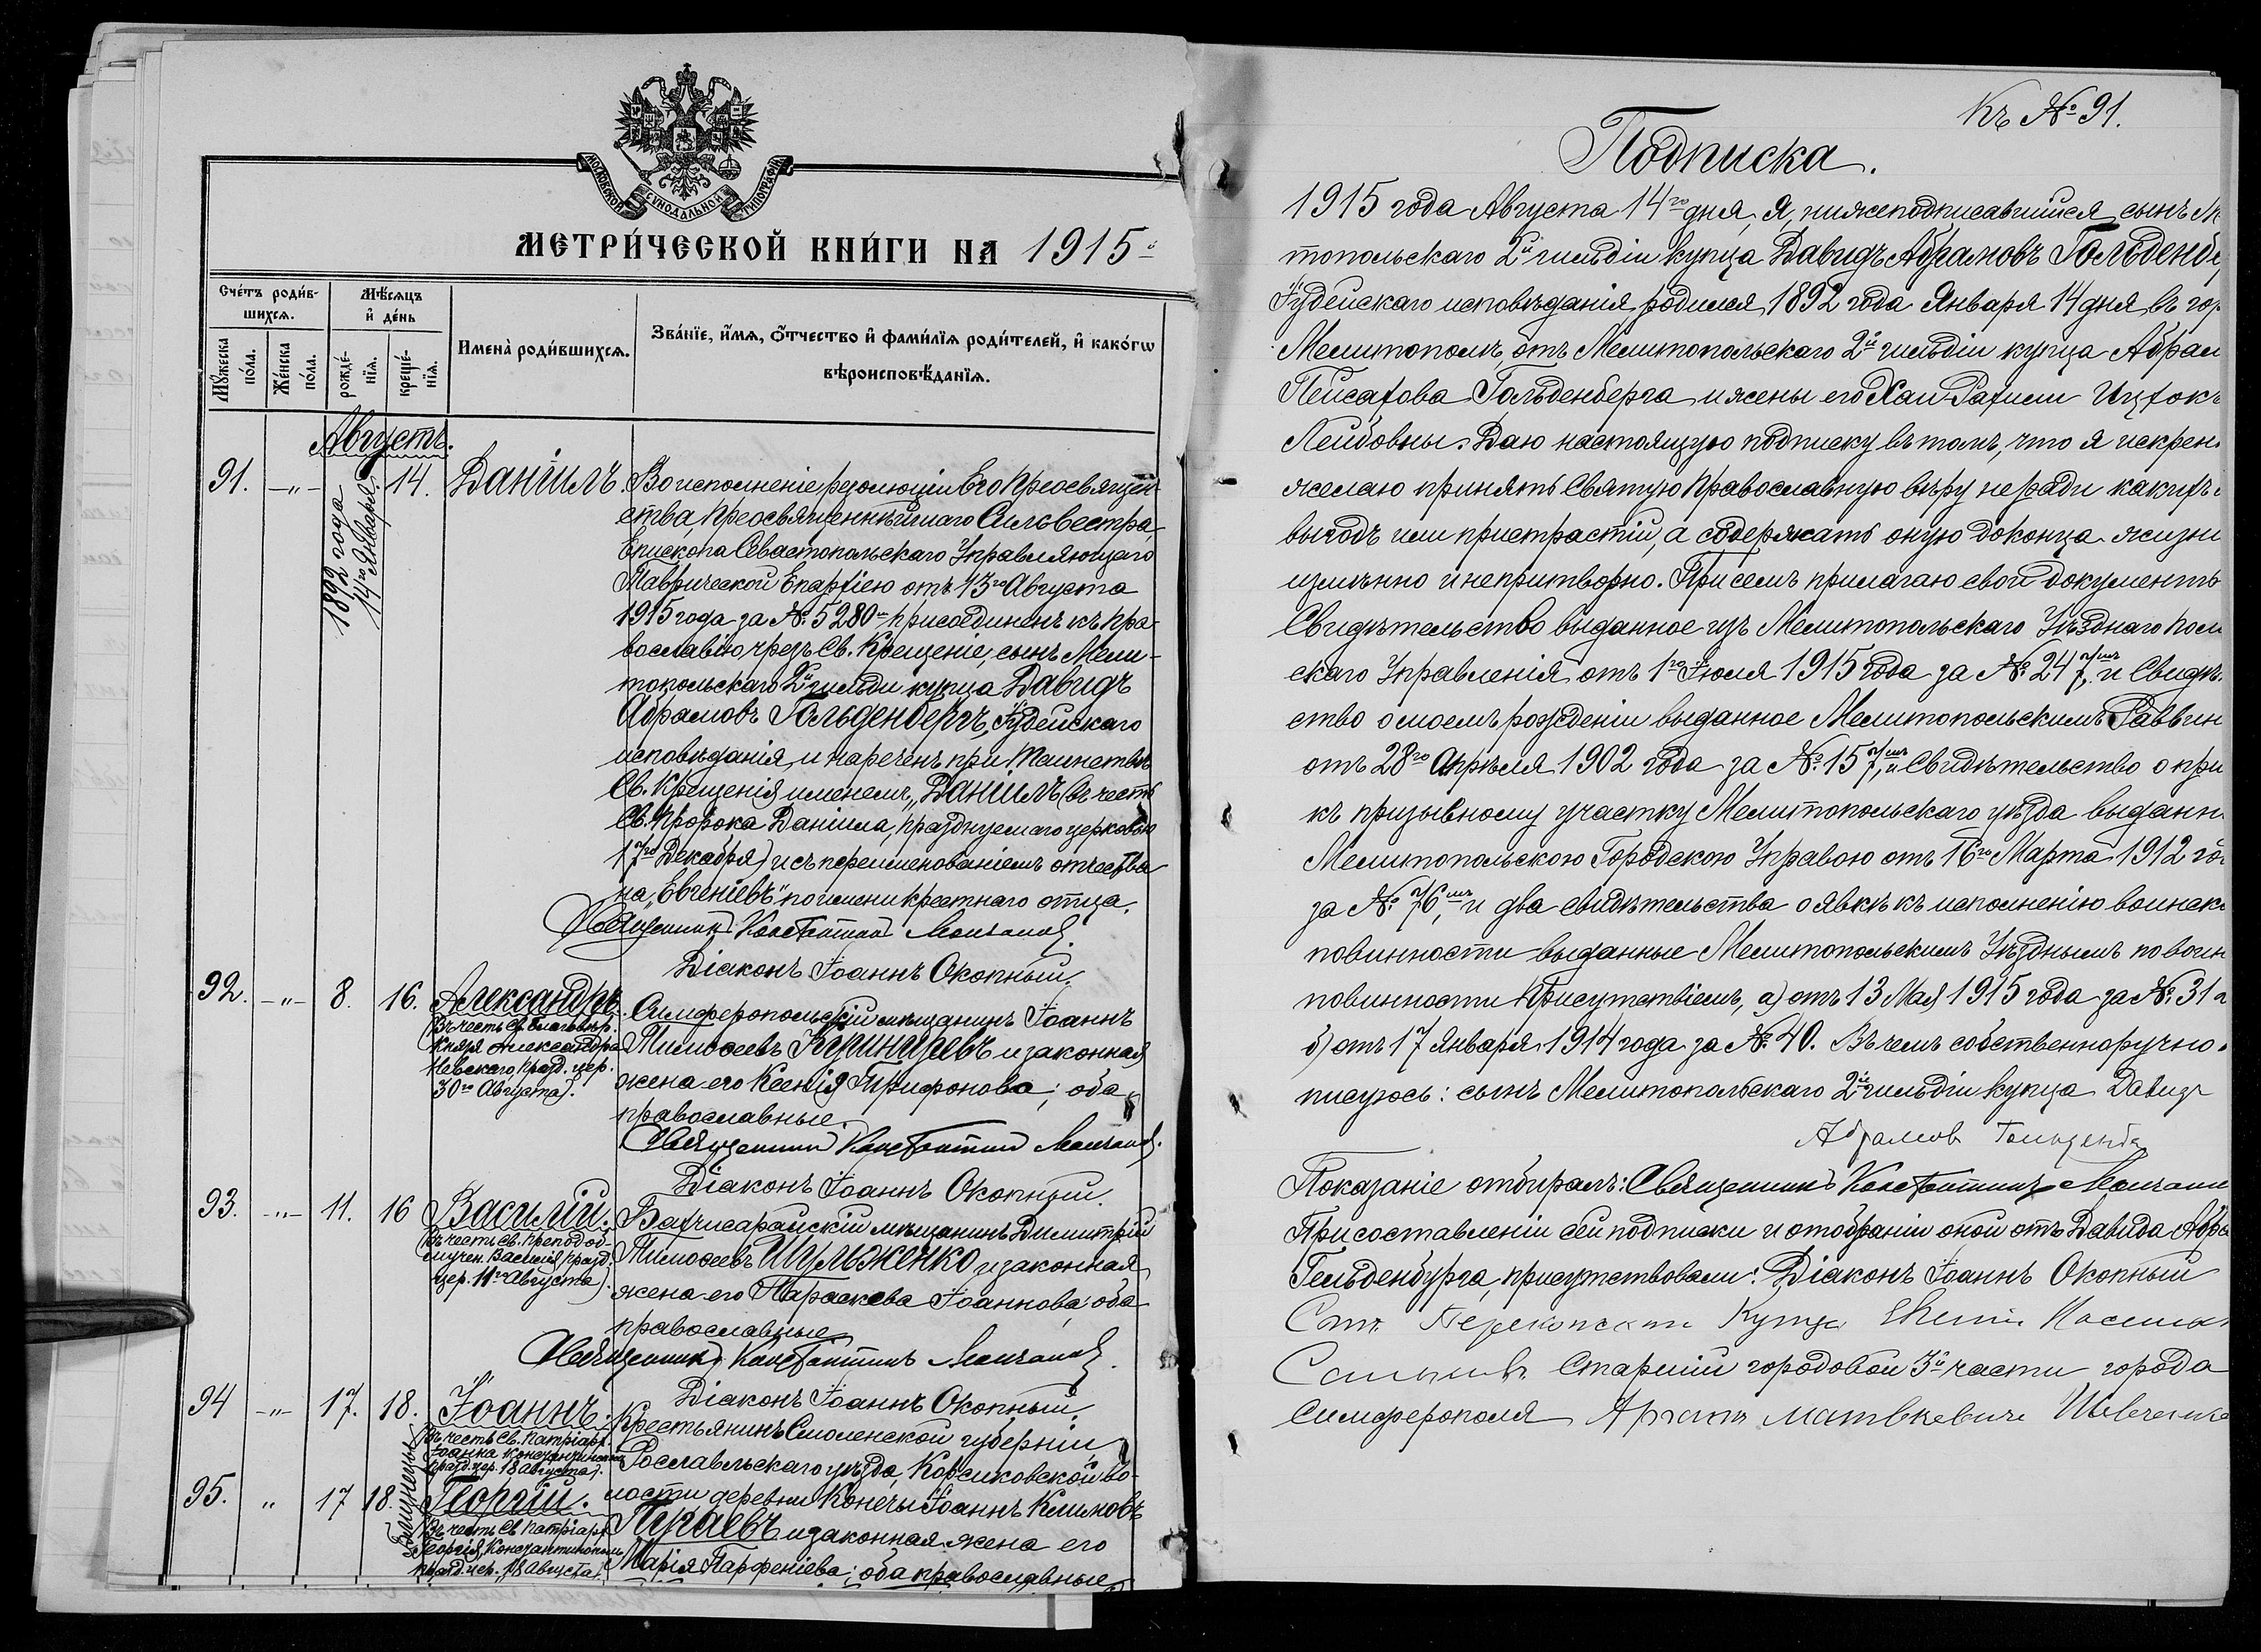 МОСКОВСКОЙ СѴНОДАЛЬНОЙ ТИПОГРАФІИ
МЕТРИ́ЧЕСКОЙ КНИ́ГИ НА 1915й
Сче́тъ роди́в-
шихсѧ.
Мѣ́сѧцъ
и҆ де́нь
Мꙋ́жеска
по́ла.
Же́нска
по́ла.
рожде́-
нїѧ.
креще́-
нїѧ.
Имена̀ роди́вшихсѧ.
Зва́нїе, и҆́мѧ, ѻ҆́тчество и҆ фами́лїѧ роди́телей, и҆ како́гѡ
вѣроисповѣ́данїѧ.
Августъ.
91. -„- 1892 года 14го Января. 14. Даніилъ.
Во исполненіе резолюціи Его Преосвящен-
ства, Преосвященнѣйшаго Сильвестра,
Епископа Севастопольскаго Управляющаго
Таврической Епархіею отъ 13го Августа
1915 года за №. 5280 присоединенъ къ пра-
вославію чрезъ Св. Крещеніе, сынъ Мели-
топольскаго 2й гильдіи купца Давидъ
Абрамовъ Гольденбергъ, Іудейскаго
исповѣданія, и нареченъ при Таинствѣ
Св. Крещенія именемъ „Даніилъ" (въ честь
Св. Пророка Даніила, празднуемаго церковью
17го Декабря) и съ переименованіемъ отчества
на „Евгеніевъ" по имени крестнаго отца.
Священникъ Константинъ
Діаконъ Іоаннъ Окопный.
92. -„- 8. 16. Александръ.
(Въ честь Св. Благовѣр.
Князя Александра
Невскаго празд. цер.
30го Августа).
Симферопольскій мѣщанинъ Іоаннъ
Тимоѳеевъ и законная
жена его Ксенія Трифонова; оба
православные.
Священникъ Константинъ
Діаконъ Іоаннъ Окопный.
93. -„- 11. 16 Василій.
(Въ честь Св. Преподоб-
мучен. Василія празд.
цер. 11го Августа).
Бахчисарайскій мѣщанинъ Димитрій
Тимоѳеевъ Шульженко и законная
жена его Параскева Іоаннова; оба
православные.
Священникъ Константинъ
Діаконъ Іоаннъ Окопный.
94 -„- 17. 18. Іоаннъ.
(Въ честь Св. Патріарх.
Іоанна
празд. цер. 18 Августа).
близнецы
95. „ 17 18. Георгій.
(Въ честь Св. Патріарх.
Георгія, Константинополь
празд. цер. 18 Августа).
Крестьянинъ Смоленской губерніи,
Рославльскаго уѣзда, Корсиковской во-
лости деревни Іоаннъ Климовъ
и законная жена его
Марія Парфеніева; оба православные
Къ № 91.
Подписка.
1915 года Августа 14го дня, Я, нижеподписавшійся сынъ М
топольскаго 2й гильдіи купца Давидъ Абрамовъ Гольденбе
Іудейскаго исповѣданія, родился 1892 года Января 14 дня, въ гор
Мелитополѣ, отъ Мелитопольскаго 2й гильдіи купца Абрам
Пейсахова Гольденберга и жены его Хаи-Рахили Ицхокъ
Лейбовны. Даю настоящую подписку въ томъ, что я искрен
желаю принять Святую Православную вѣру не ради какихъ
выгодъ или пристрастій, а содержать оную до конца жизни
измѣнно и непритворно. При семъ прилагаю свои документъ
Свидѣтельство выданное изъ Мелитопольскаго Уѣзднаго Поли
скаго Управленія отъ 1го Іюля 1915 года за №. 247, и Свидѣ
ство о моемъ рожденіи выданное Мелитопольскимъ Раввин
отъ 28го Апрѣля 1902 года за №. 157, и Свидѣтельство о при
къ призывному участку Мелитопольскаго уѣзда выданн
Мелитопольскою Городскою Управою отъ 16го Марта 1912 го
за №. 76, и два свидѣтельства о явкѣ къ исполненію воинск
повинности выданные Мелитопольскимъ Уѣзднымъ по воин
повинности Присутствіемъ, а) отъ 13 Мая 1915 года за №. 31 и
б) отъ 17 Января 1914 года за №. 40. Въ чемъ собственноручно
писуюсь: сынъ Мелитопольскаго 2й гильдіи купца Давидъ
Абрамов Гольденбе
Показаніе отбиралъ: Священникъ Константинъ
При составленіи сей подписки и отобраніи оной отъ Давида Абра
Гельденбурга, присутствовали: Діаконъ Іоаннъ Окопный
Сынъ Перекопскаго Купца
Старшій городовой 3й части города
Симферополя Матвѣевичъ Шевченко